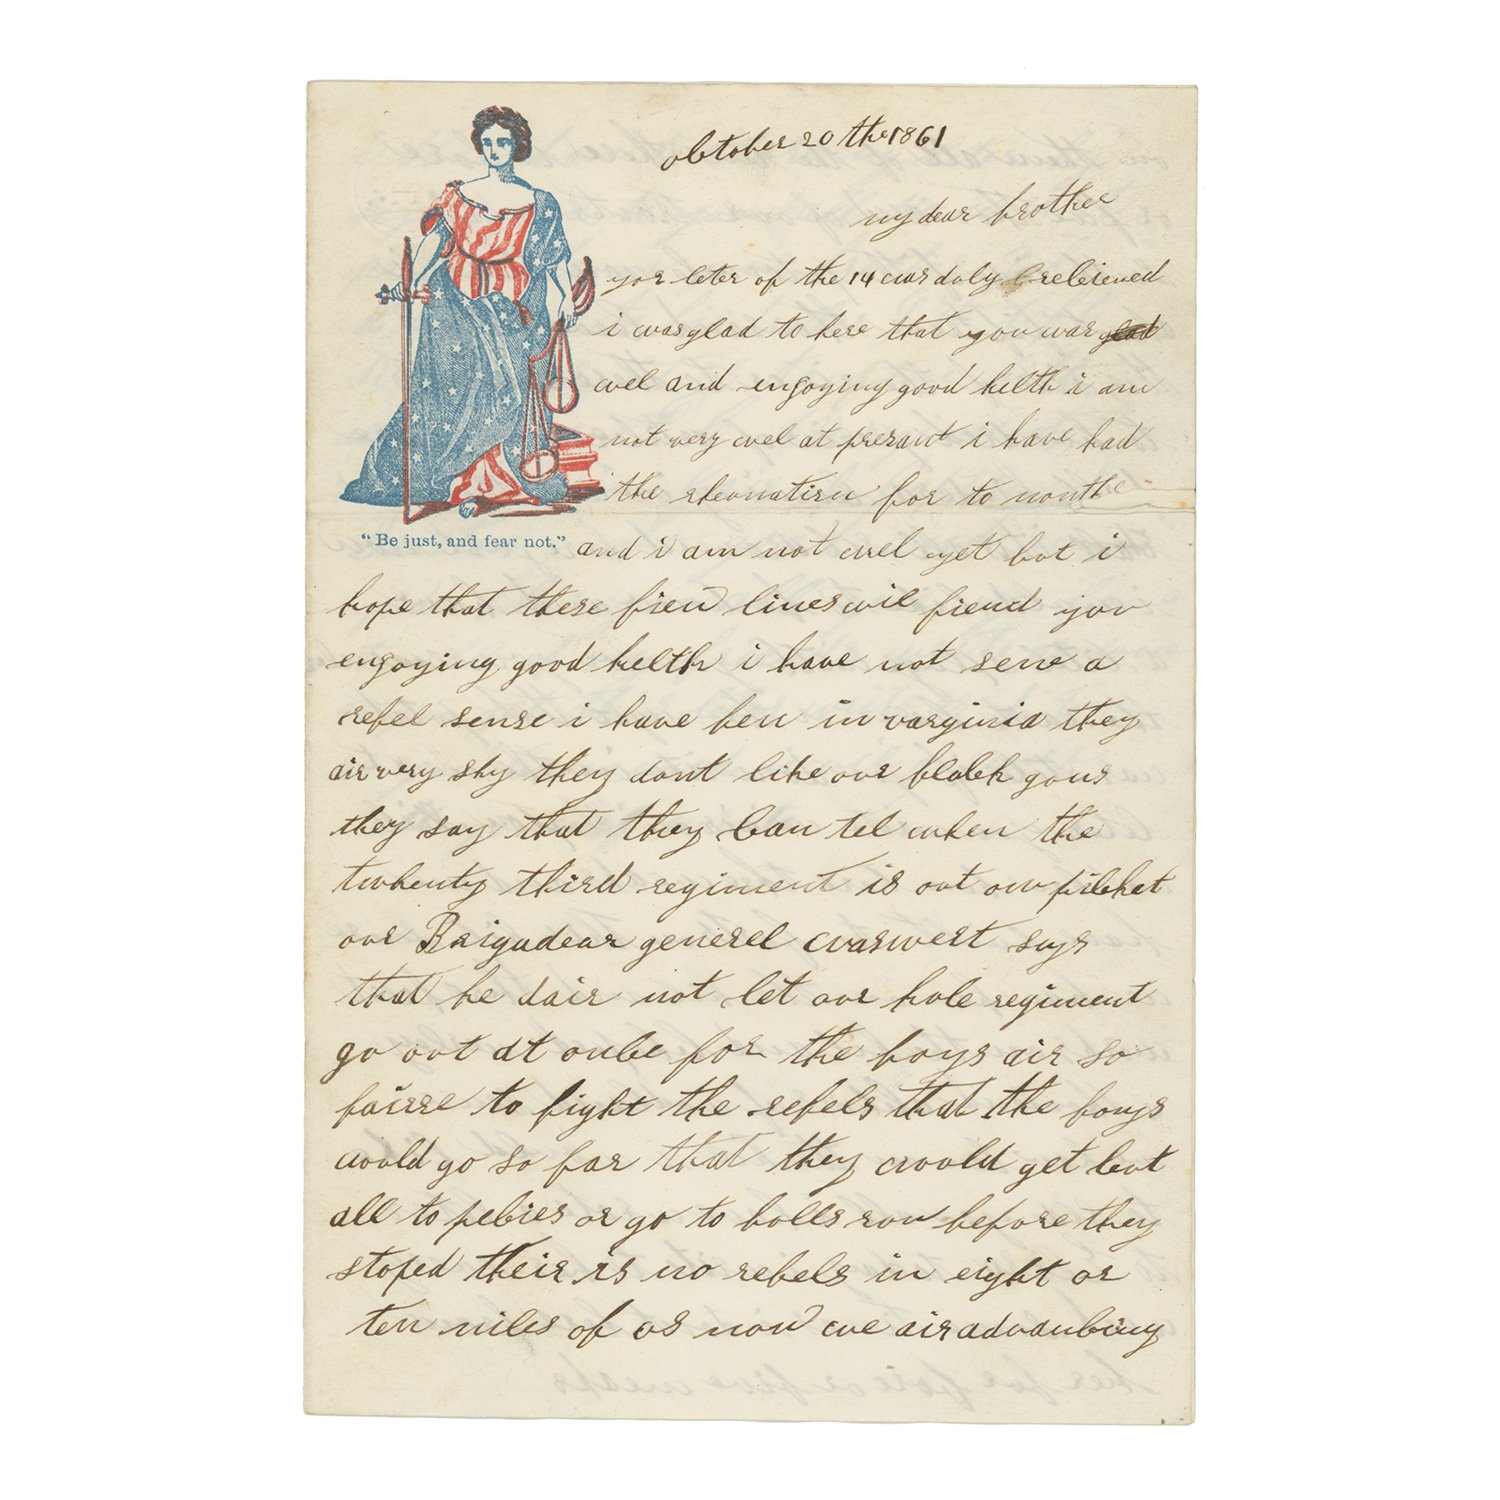 october 20 the 1861
my dear brother
yor leter of the 14 was duly receieved
i was glad to here that you was glad
wel and engoying good helth i am
not very wel at presant i have had
the rheumatism for to month
"Be just, and fear not."
and i am not wel yet but i
hope that these fiew lines wil fiend you
engoying good helth i have not sene a
rebel sense i have ben in varginia they
air very shy they dont like our black guns
they say that they can tel when the
twhenty third regiment is out on picket
our Brigadear generel says
that he dair not let our hole regiment
go out at once for the boys air so
fairse to fight the rebels that the boys
would go so far that they would get cut
all to pecies or go to bolls row before they
stoped their is no rebels in eight or
ten miles of us now we air advancing